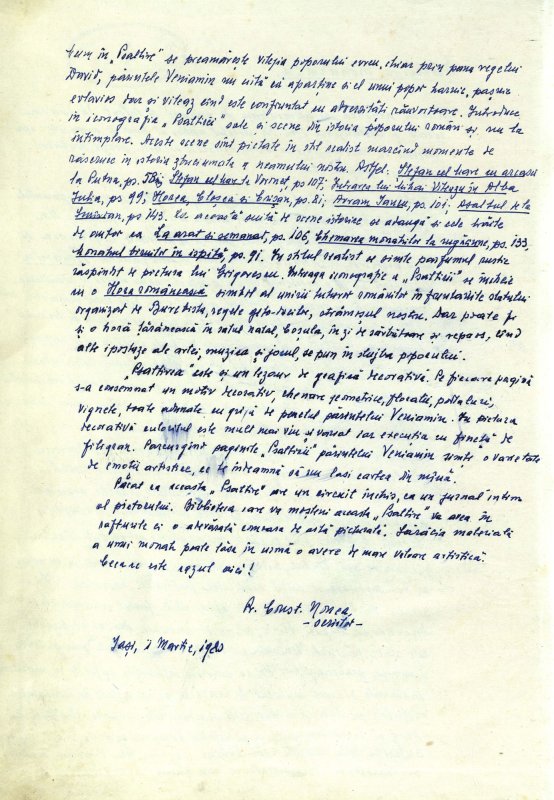 Cum în „Psaltire" se preamărește vitejia poporului evreu, chiar prin pana regelui
David, părintele Veniamin nu uită că aparține și el unui popor harnic, pașnic
evlavios dar și viteaz cînd este confruntat cu adversități răuvoitoare. Introduce
în iconografia „Psaltirii" sale și scene din istoria poporului român și nu la
întîmplare. Aceste scene sînt pictate în stil realist marcînd momente de
răscruce în istoria zbuciumată a neamului nostru. Astfel: Ștefan cel Mare cu arcașul
la Putna, ps. Ștefan cel Mare la Voroneț, ps 107; Intrarea lui Mihai Viteazu în Alba
Iulia, ps 99; Horea, Cloșca și Crișan, ps. 21; Avram Iancu, ps. 101; Asaltul de la
ps. 143. La această suită de scene istorice se adaugă și cele trăite
de autor ca La arat și semănat, ps. 106, Chemarea monahilor la rugăciune, ps. 133,
Monahul biruitor în ispită, ps. 91. În stilul realist se simte parfumul rustic
răspîndit de pictura lui Grigorescu. Întreaga iconografie a „Psaltirii" se încheie
cu o Horă românească simbol al unirii tuturor românilor în fruntariile statului
organizat de Burebista, regele geto-dacilor, strămoșul nostru. Dar poate fi
și o horă țărănească în satul natal, Coșula, în zi de sărbătoare și repaos, cînd
alte ipostaze ale artei, muzica și jocul, se pun în slujba poporului.
„Psaltirea" este și un tezaur de grafică decorativă. Pe fiecare pagină
s-a consemnat un motiv decorativ, chenare geometrice, florale, portaluri,
vignete, toate adunate cu grijă de penelul părintelui Veniamin. În pictura
decorativă coloritul este mult mai viu și variat iar execuția cu finețe de
filigran. Parcurgînd paginile „Psaltirii" părintelui Veniamin simți o varietate
de emoții artistice, ce te îndeamnă să nu lași cartea din mînă.
Păcat că această „Psaltire" are un circuit închis, ca un jurnal intim
al pictorului. Biblioteca care va moșteni această „Psaltire" va avea în
rafturile ei o adevărată comoară de artă picturală. Sărăcia materială
a unui monah poate lăsa în urmă o avere de mare valoare artistică.
Ceea ce este cazul aici!
Pr. Const. Nonea,
Iași, 1 Martie, 1980